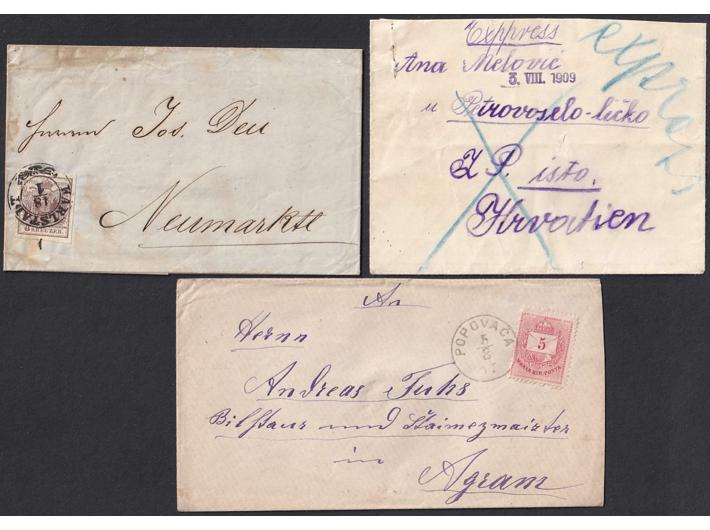 Herrn Jos. Deu
Neumarktl
KARLSTADT
18
1
6 KREUZER.
Exppress
Ana Melović
3. VIII. 1909
u Petrovoselo-ličko
Z. P. isto.
Hrvatien
express
An
Herrn
Andreas Fuhs
Bilthaur und Staimezmaister
in
Agram
POPOVAČA
5
MAGYAR KIR. POSTA